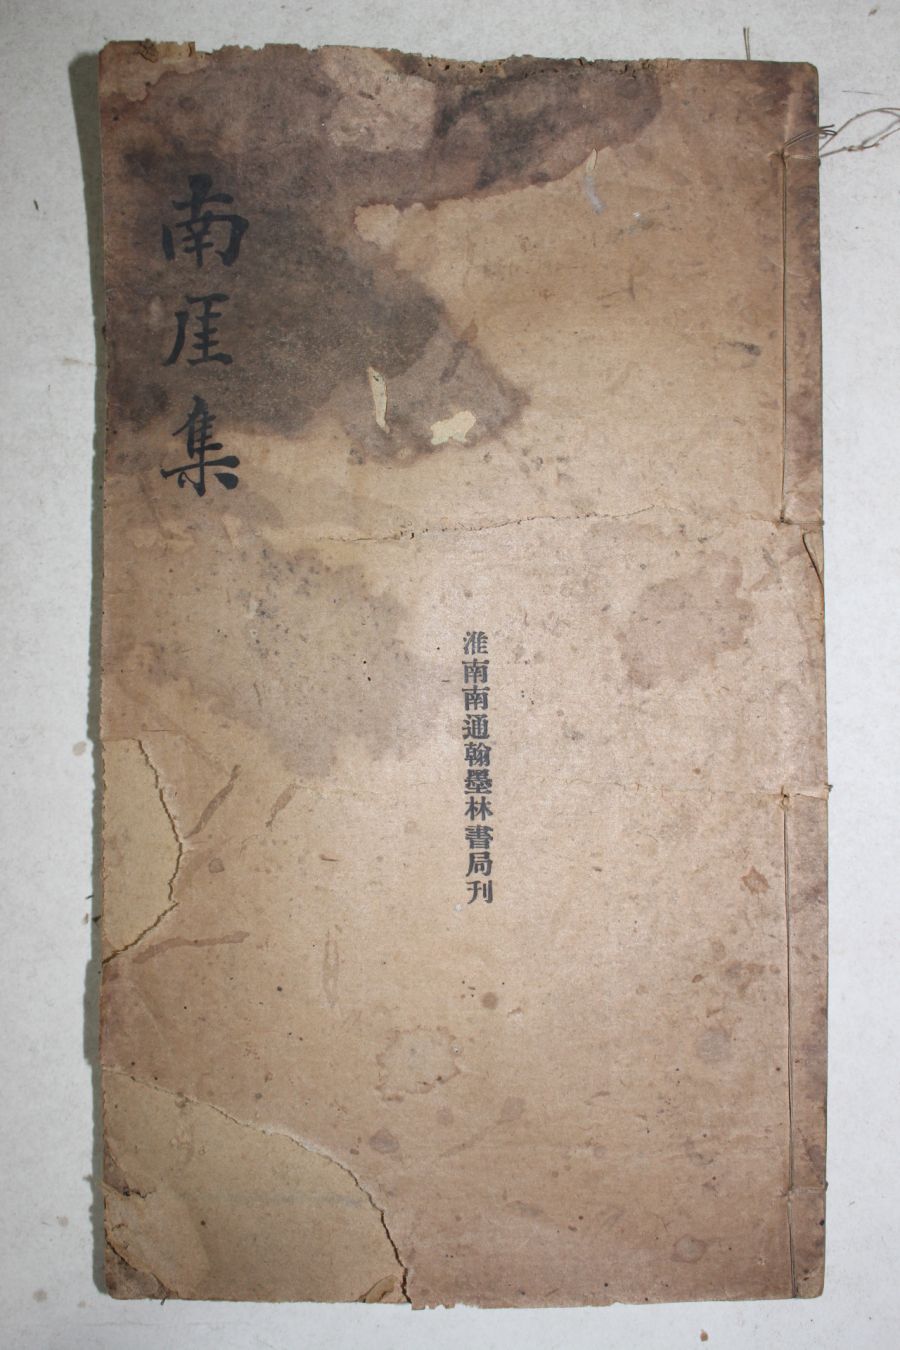 南厓集
淮南南通翰墨林書局刊